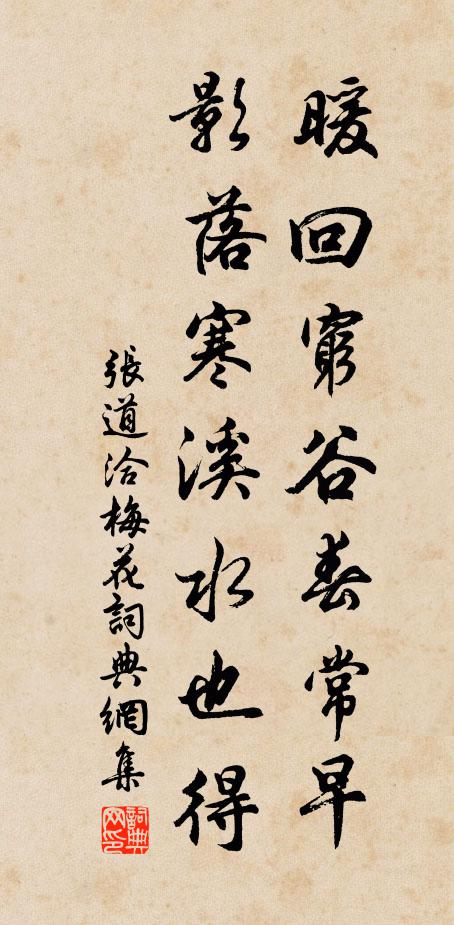 暖回窮谷春常早
影落寒溪水也得
張道洽梅花詞典網集
詞典網印